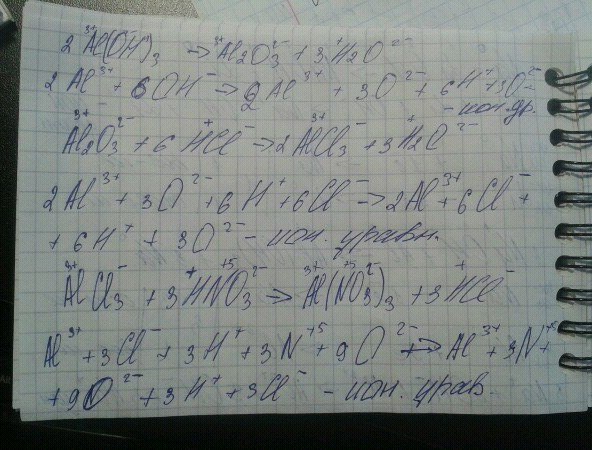 2Al³⁺(OH)⁻₃ → Al³⁺₂O²⁻₃ + 3H⁺₂O²⁻
2Al³⁺ + 6OH⁻ → 2Al³⁺ + 3O²⁻ + 6H⁺ + 3O²⁻
– ион. ур.
Al³⁺₂O²⁻₃ + 6H⁺Cl⁻ → 2Al³⁺Cl⁻₃ + 3H⁺₂O²⁻
2Al³⁺ + 3O²⁻ + 6H⁺ + 6Cl⁻ → 2Al³⁺ + 6Cl⁻ +
+ 6H⁺ + 3O²⁻ – ион. уравн.
Al³⁺Cl⁻₃ + 3H⁺N⁺⁵O²⁻₃ → Al³⁺(N⁺⁵O²⁻₃)₃ + 3H⁺Cl⁻
Al³⁺ + 3Cl⁻ + 3H⁺ + 3N⁺⁵ + 9O²⁻ → Al³⁺ + 3N⁺⁵ +
+ 9O²⁻ + 3H⁺ + 3Cl⁻ – ион. урав.